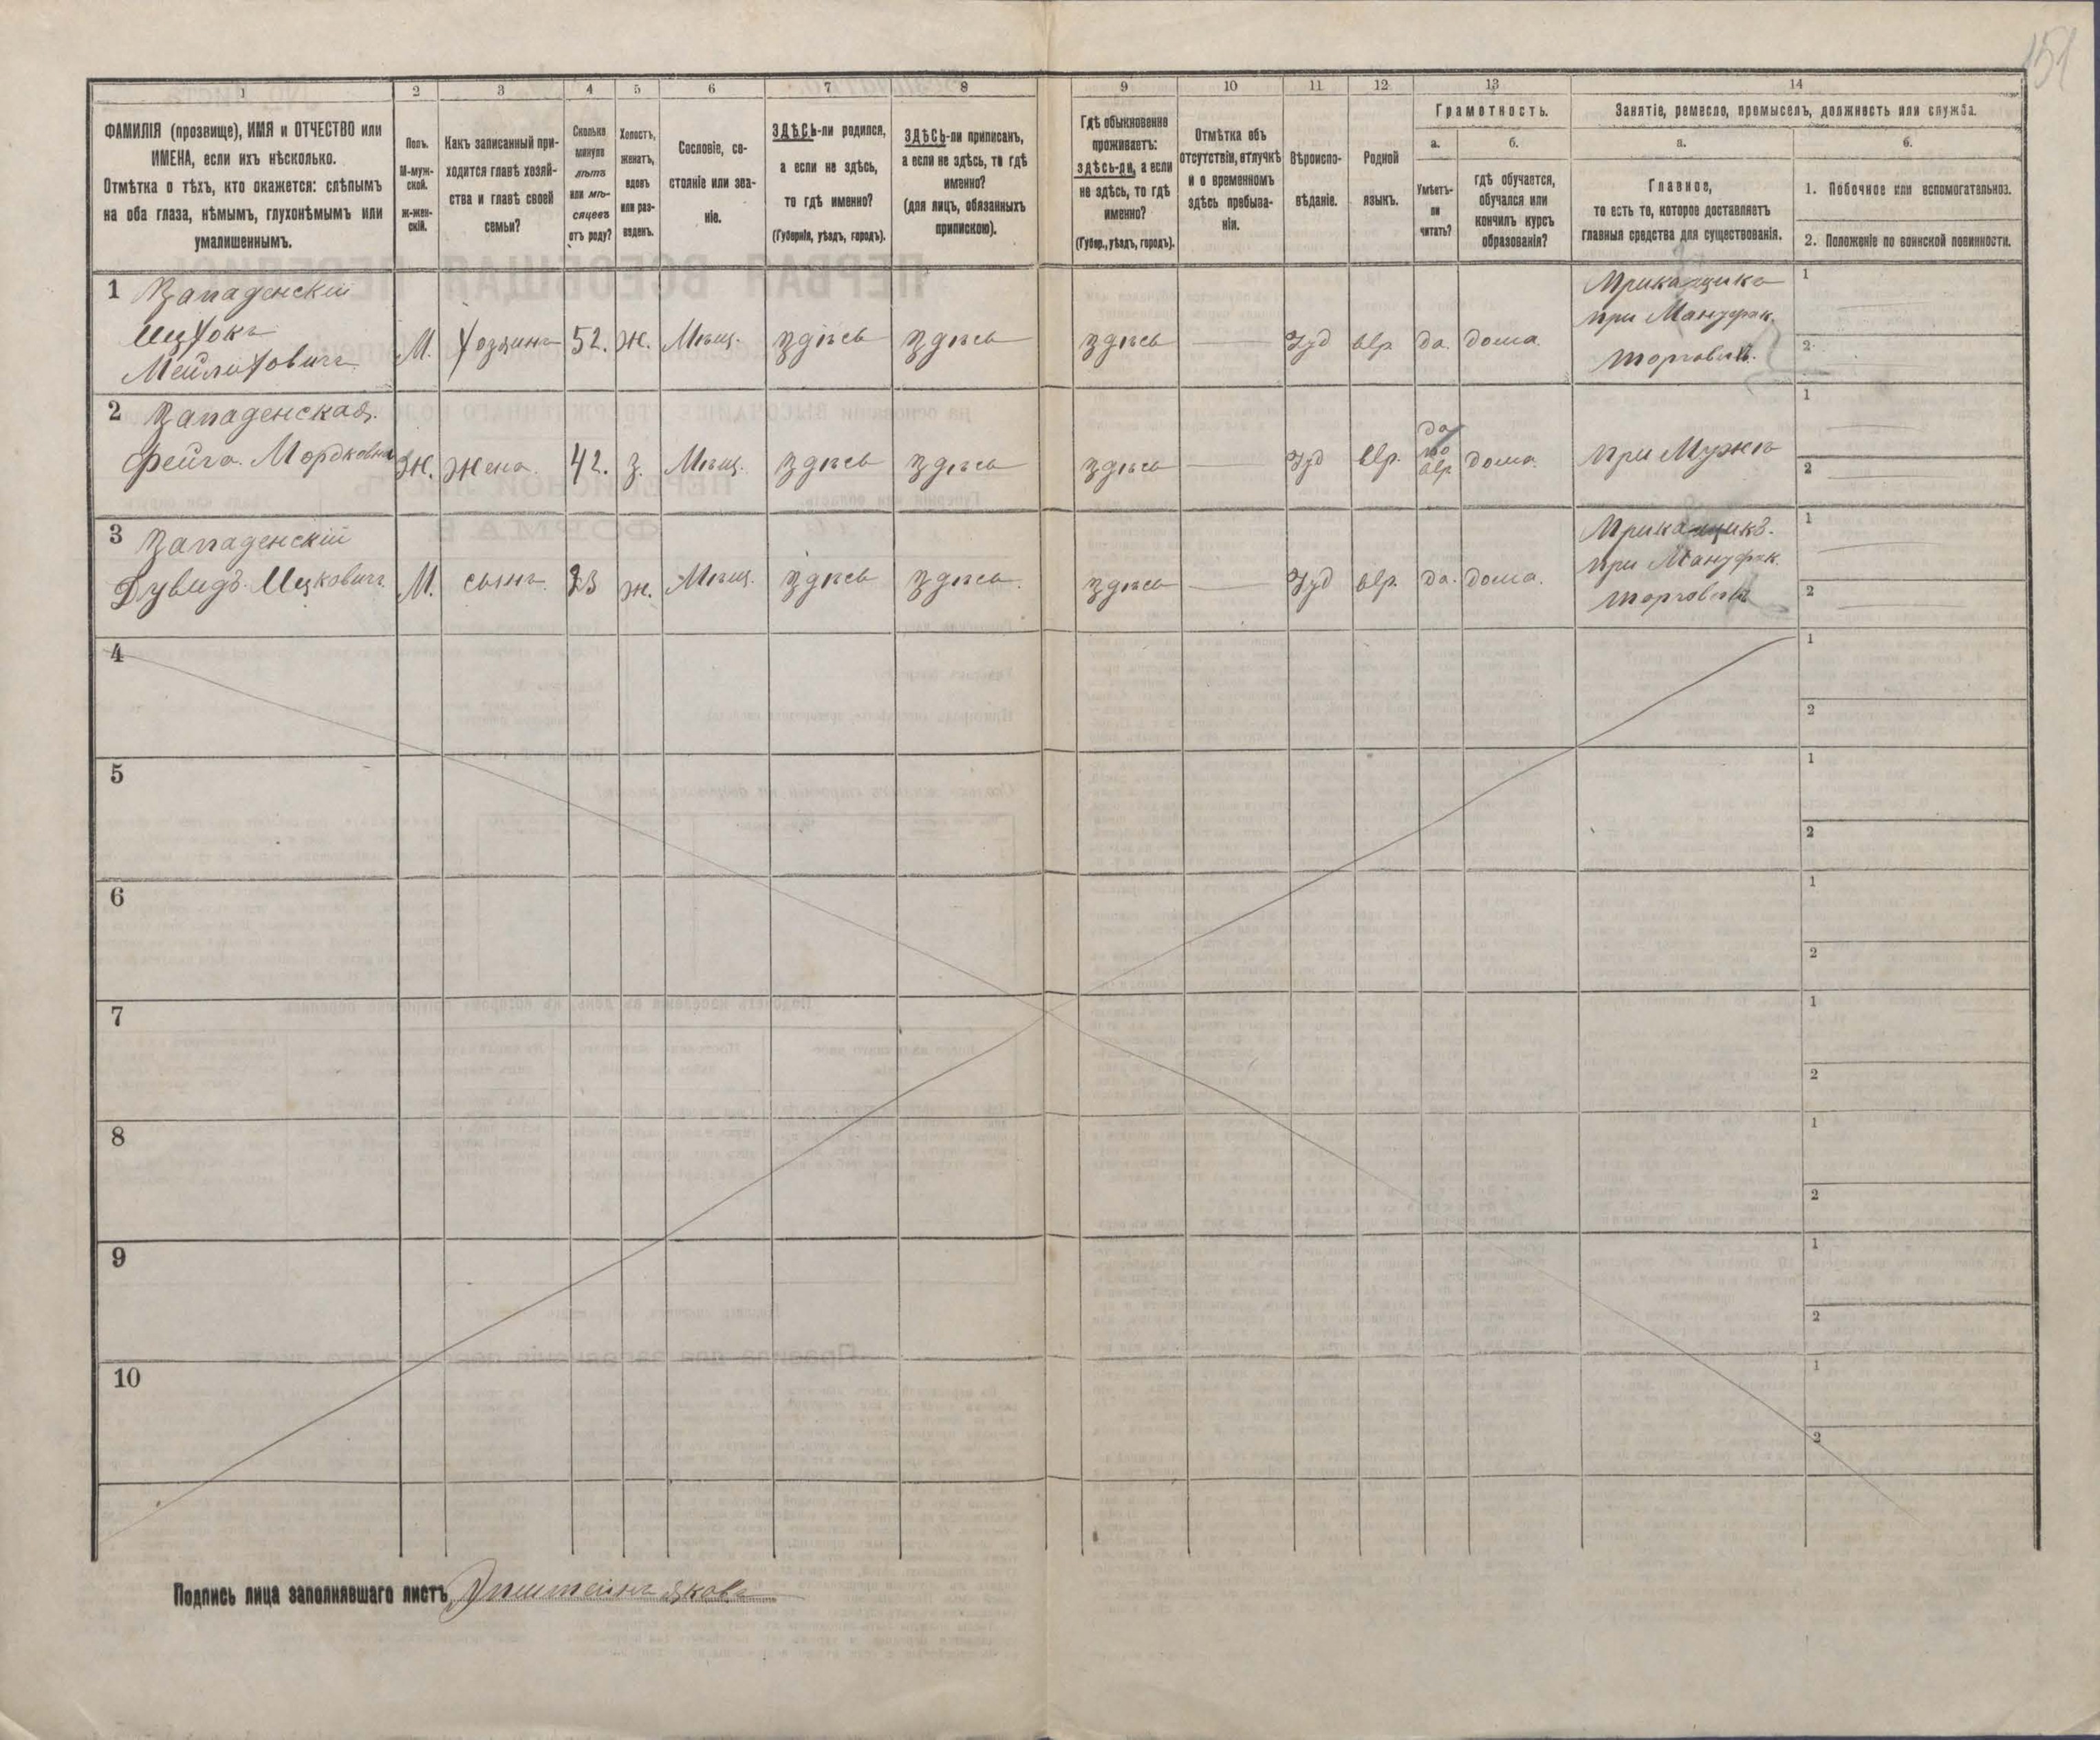 151
1
2
3
4
5
6
7
8
9
10
11
12
13
14
ФАМИЛІЯ (прозвище), ИМЯ и ОТЧЕСТВО или
ИМЕНА, если ихъ нѣсколько.
Отмѣтка о тѣхъ, кто окажется: слѣпымъ
на оба глаза, нѣмымъ, глухонѣмымъ или
умалишеннымъ.
Полъ.
М-муж-
ской.
Ж-жен-
скій.
Какъ записанный при-
ходится главѣ хозяй-
ства и главѣ своей
семьи?
Сколько
минуло
лѣтъ
или мѣ-
сяцевъ
отъ роду?
Холостъ,
женатъ,
вдовъ
или раз-
веденъ.
Сословіе, со-
стояніе или зва-
ніе.
ЗДѢСЬ-ли родился,
а если не здѣсь,
то гдѣ именно?
(Губернія, уѣздъ, городъ).
ЗДѢСЬ-ли приписанъ,
а если не здѣсь, то гдѣ
именно?
(для лицъ, обязанныхъ
припискою).
Гдѣ обыкновенно
проживаетъ:
здѣсь-ли, а если
не здѣсь, то гдѣ
именно?
(Губер., уѣздъ, городъ).
Отмѣтка объ
отсутствіи, отлучкѣ
и о временномъ
здѣсь пребыва-
ніи.
Вѣроиспо-
вѣданіе.
Родной
языкъ.
Грамотность.
а.
Умѣетъ-
ли
читать?
б.
гдѣ обучается,
обучался или
кончилъ курсъ
образованія?
Занятіе, ремесло, промыселъ, должность или служба.
а.
Главное,
то есть то, которое доставляетъ
главныя средства для существованія.
б.
1. Побочное или вспомогательное.
2. Положеніе по воинской повинности.
1 Западенскій
Ицхокъ
Мейлиховичъ
М. Хозяинъ 52. Ж. Мѣщ. здѣсь здѣсь здѣсь Іуд евр. да. дома.
Прикащикъ
при Мануфак.
торговлѣ.
1
2
2 Западенская.
Фейга Мордковна
Ж. жена. 42. З. Мѣщ. здѣсь здѣсь здѣсь Іуд евр.
да
по
евр
дома.
при Мужѣ
1
2
3 Западенскій
Дувидъ Ицковичъ
М. сынъ. 23 Ж. Мѣщ. здѣсь здѣсь. здѣсь Іуд евр. да. дома.
Прикащикъ.
при Мануфак.
торговлѣ
1
2
4
1
2
5
1
2
6
1
2
7
1
2
8
1
2
9
1
2
10
1
2
Подпись лица заполнявшаго листъ Эпштейнъ Яковъ